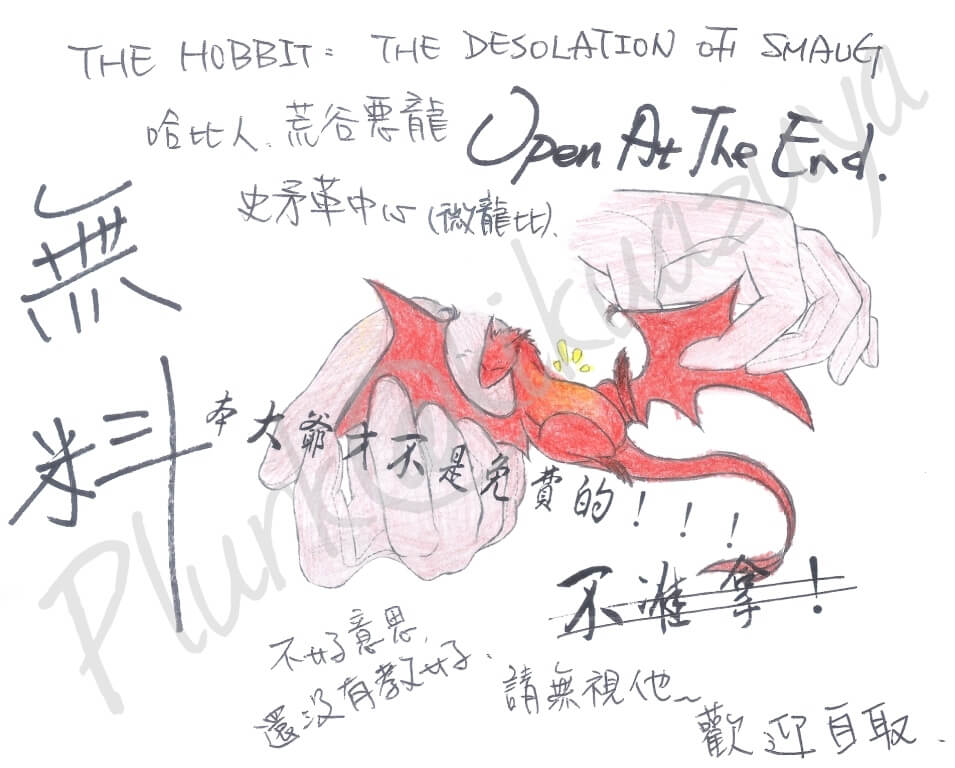 THE HOBBIT: THE DESOLATION OF SMAUG
哈比人.荒谷惡龍
Open At The End.
史矛革中心(微龍比).
無料
本大爺才不是免費的!!!
不准拿!
不好意思,
還沒有教好.
請無視他~
歡迎自取.
Plurk@rikuazuya